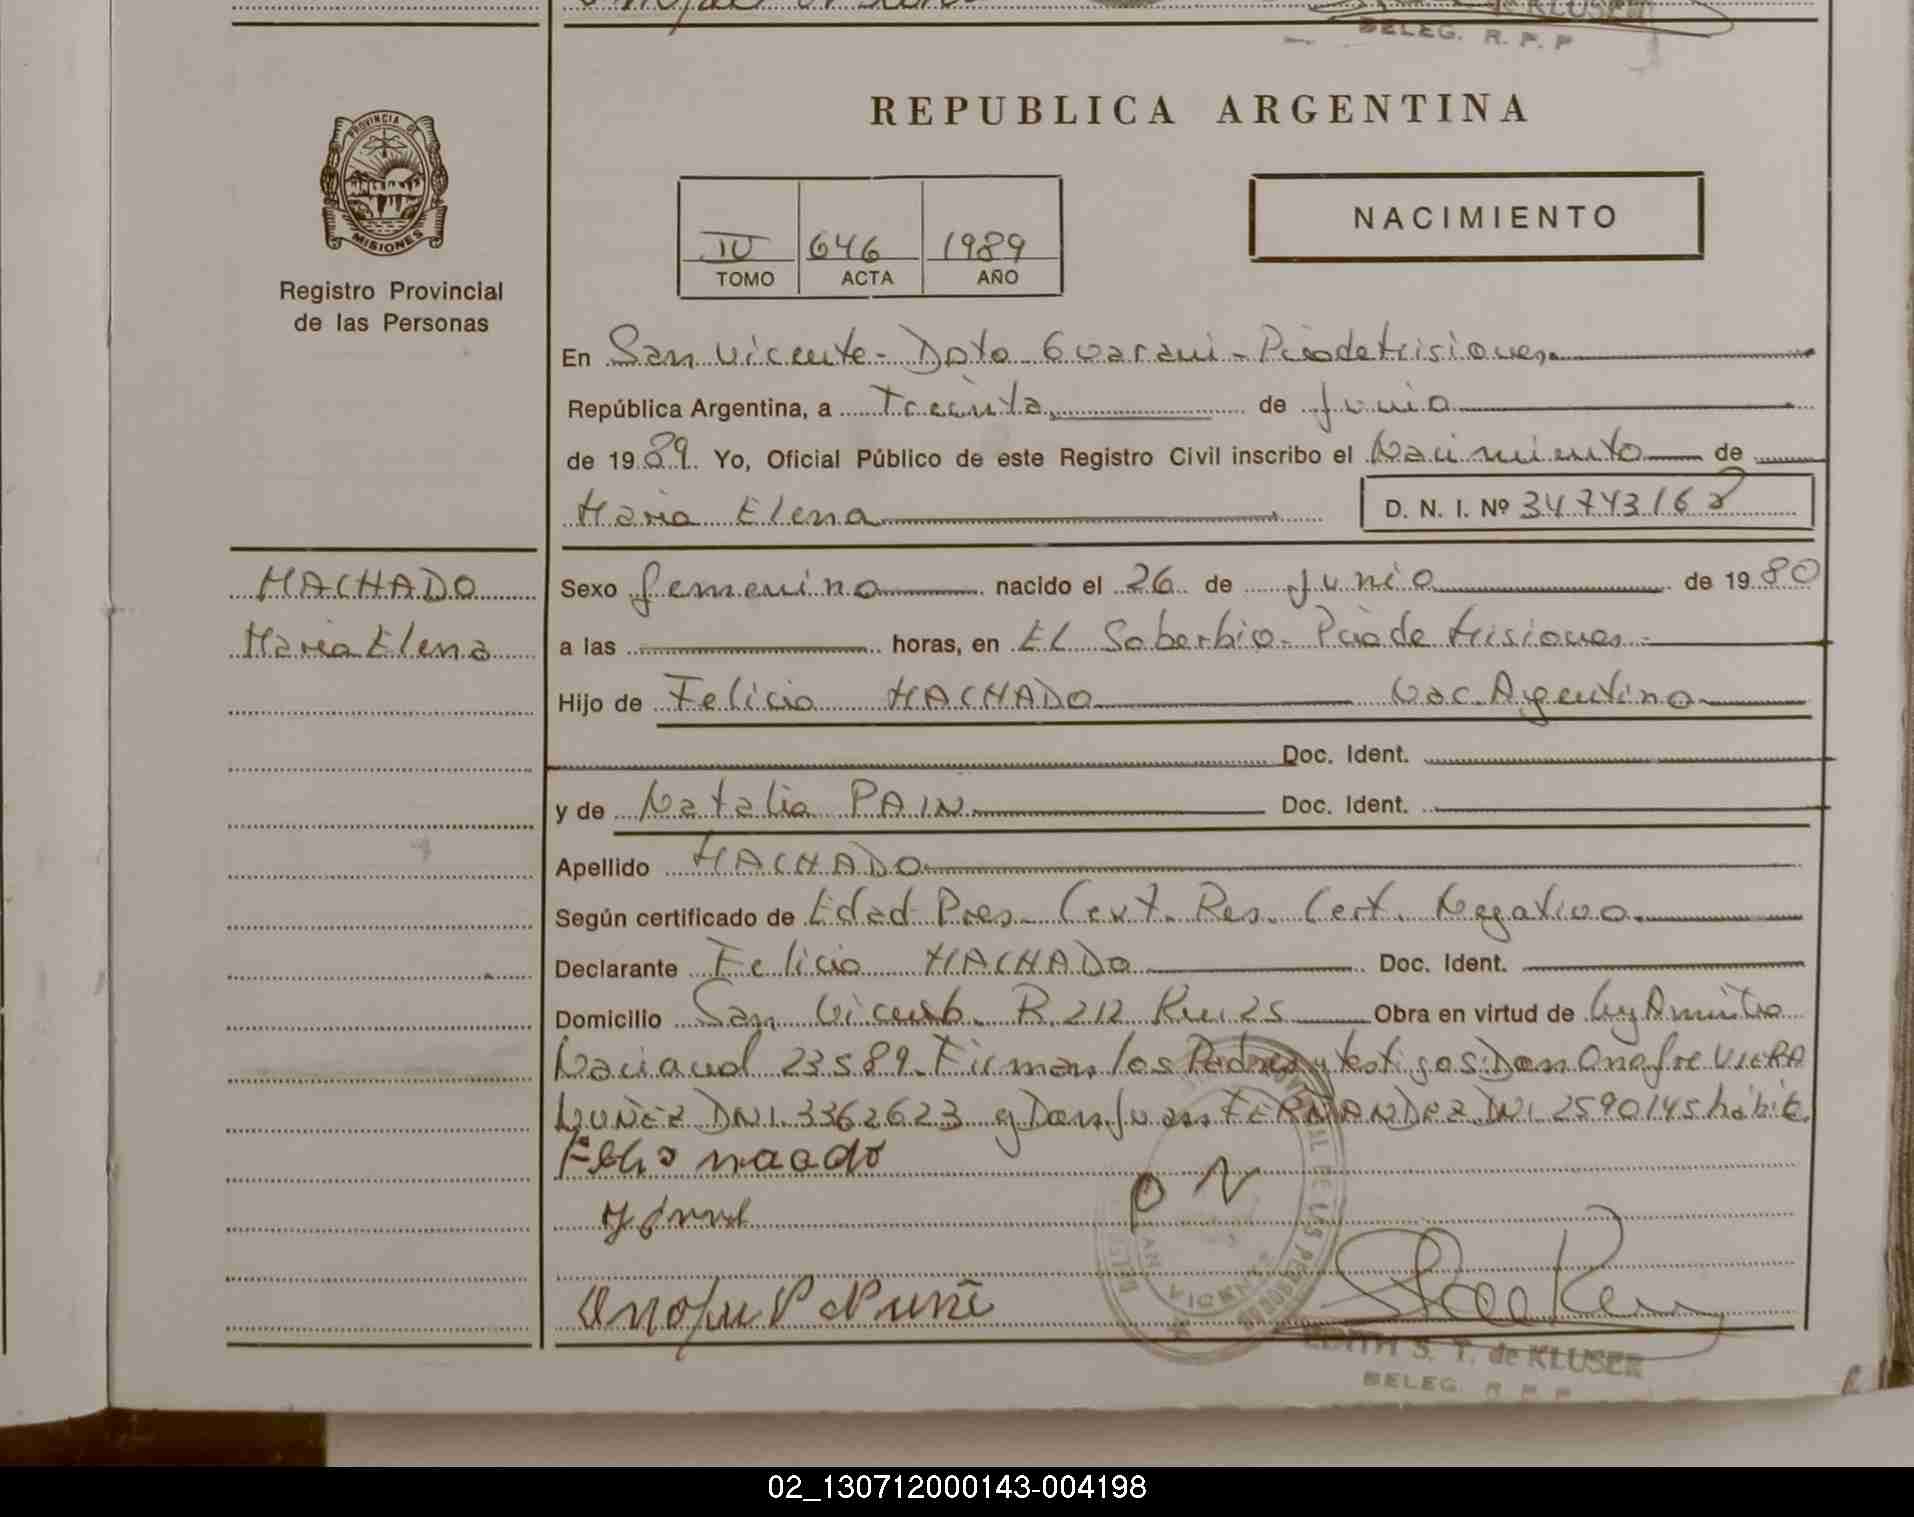 DELEG. R. P. P
REPUBLICA ARGENTINA
PROVINCIA DE
MISIONES
Registro Provincial
de las Personas
NACIMIENTO
IV 646 1989
TOMO ACTA AÑO
En San Vicente - Dpto Guarani - Pciadetrisiones
República Argentina, a Treinta de Junio
de 1989. Yo, Oficial Público de este Registro Civil inscribo el Nacimiento de
Maria Elena D. N. I. Nº 34743168
MACHADO
Maria Elena
Sexo femenino nacido el 26 de Junio de 1980
a las horas, en EL Soberbio - Pciade Misiones -
Hijo de Felicio MACHADO Nac. Argentino
Doc. Ident.
y de Natalia PAIN Doc. Ident.
Apellido MACHADO
Según certificado de Edad Pres. Cert. Res. Cert. Negativo.
Declarante Felicio MACHADO Doc. Ident.
Domicilio San Vicente R. 212 Km. 25 Obra en virtud de Ley
Nacional 23589. Firman los Padres y testigos: Don Onofre VIERA
NUÑEZ DNI. 3362623 y Don Juan FERNANDEZ DNI. 2590145 habit.
P N
EDITH S. T. de KLUSER
DELEG. R. P. P
02_130712000143-004198